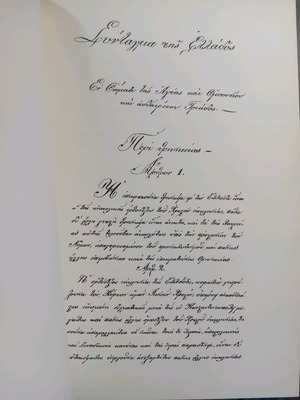 Σύνταγμα της Ελλάδος
Εν Ονόματι της Αγίας και Ομοουσίου
και αδιαιρέτου Τριάδος.—
Περί θρησκείας.—
Άρθρον 1.
Η επικρατούσα θρησκεία εις την Ελλάδα είναι
η της ανατολικής ορθοδόξου του Χριστού εκκλησίας, πάσα
δε άλλη γνωστή θρησκεία είναι ανεκτή, και τα της λατρείας
αυτής τελούνται ακωλύτως υπό την προστασίαν των
Νόμων, απαγορευομένου του προσηλυτισμού και πάσης
άλλης επεμβάσεως κατά της επικρατούσης θρησκείας.
Άρθρ. 2.
Η ορθόδοξος εκκλησία της Ελλάδος, κεφαλήν γνωρί-
ζουσα τον Κύριον ημών Ιησούν Χριστόν, υπάρχει αναπόσπά
στως ηνωμένη δογματικώς μετά της εν Κωνσταντινουπόλει με-
γάλης και πάσης άλλης ομοδόξου του Χριστού εκκλησίας, τη-
ρούσα απαραλλάκτως ως εκείναι τους τε ιερούς αποστολικούς
και Συνοδικούς κανόνας και τας ιεράς παραδόσεις, είναι δε
αυτοκέφαλος ενεργούσα ανεξαρτήτως πάσης άλλης εκκλησίας